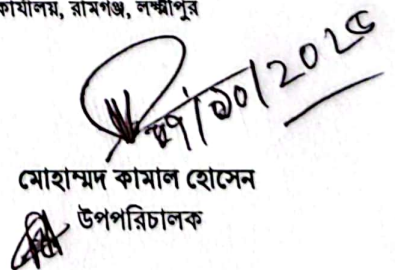 কার্যালয়, রামগঞ্জ, লক্ষ্মীপুর
/১০/২০২৫
মোহাম্মদ কামাল হোসেন
উপপরিচালক